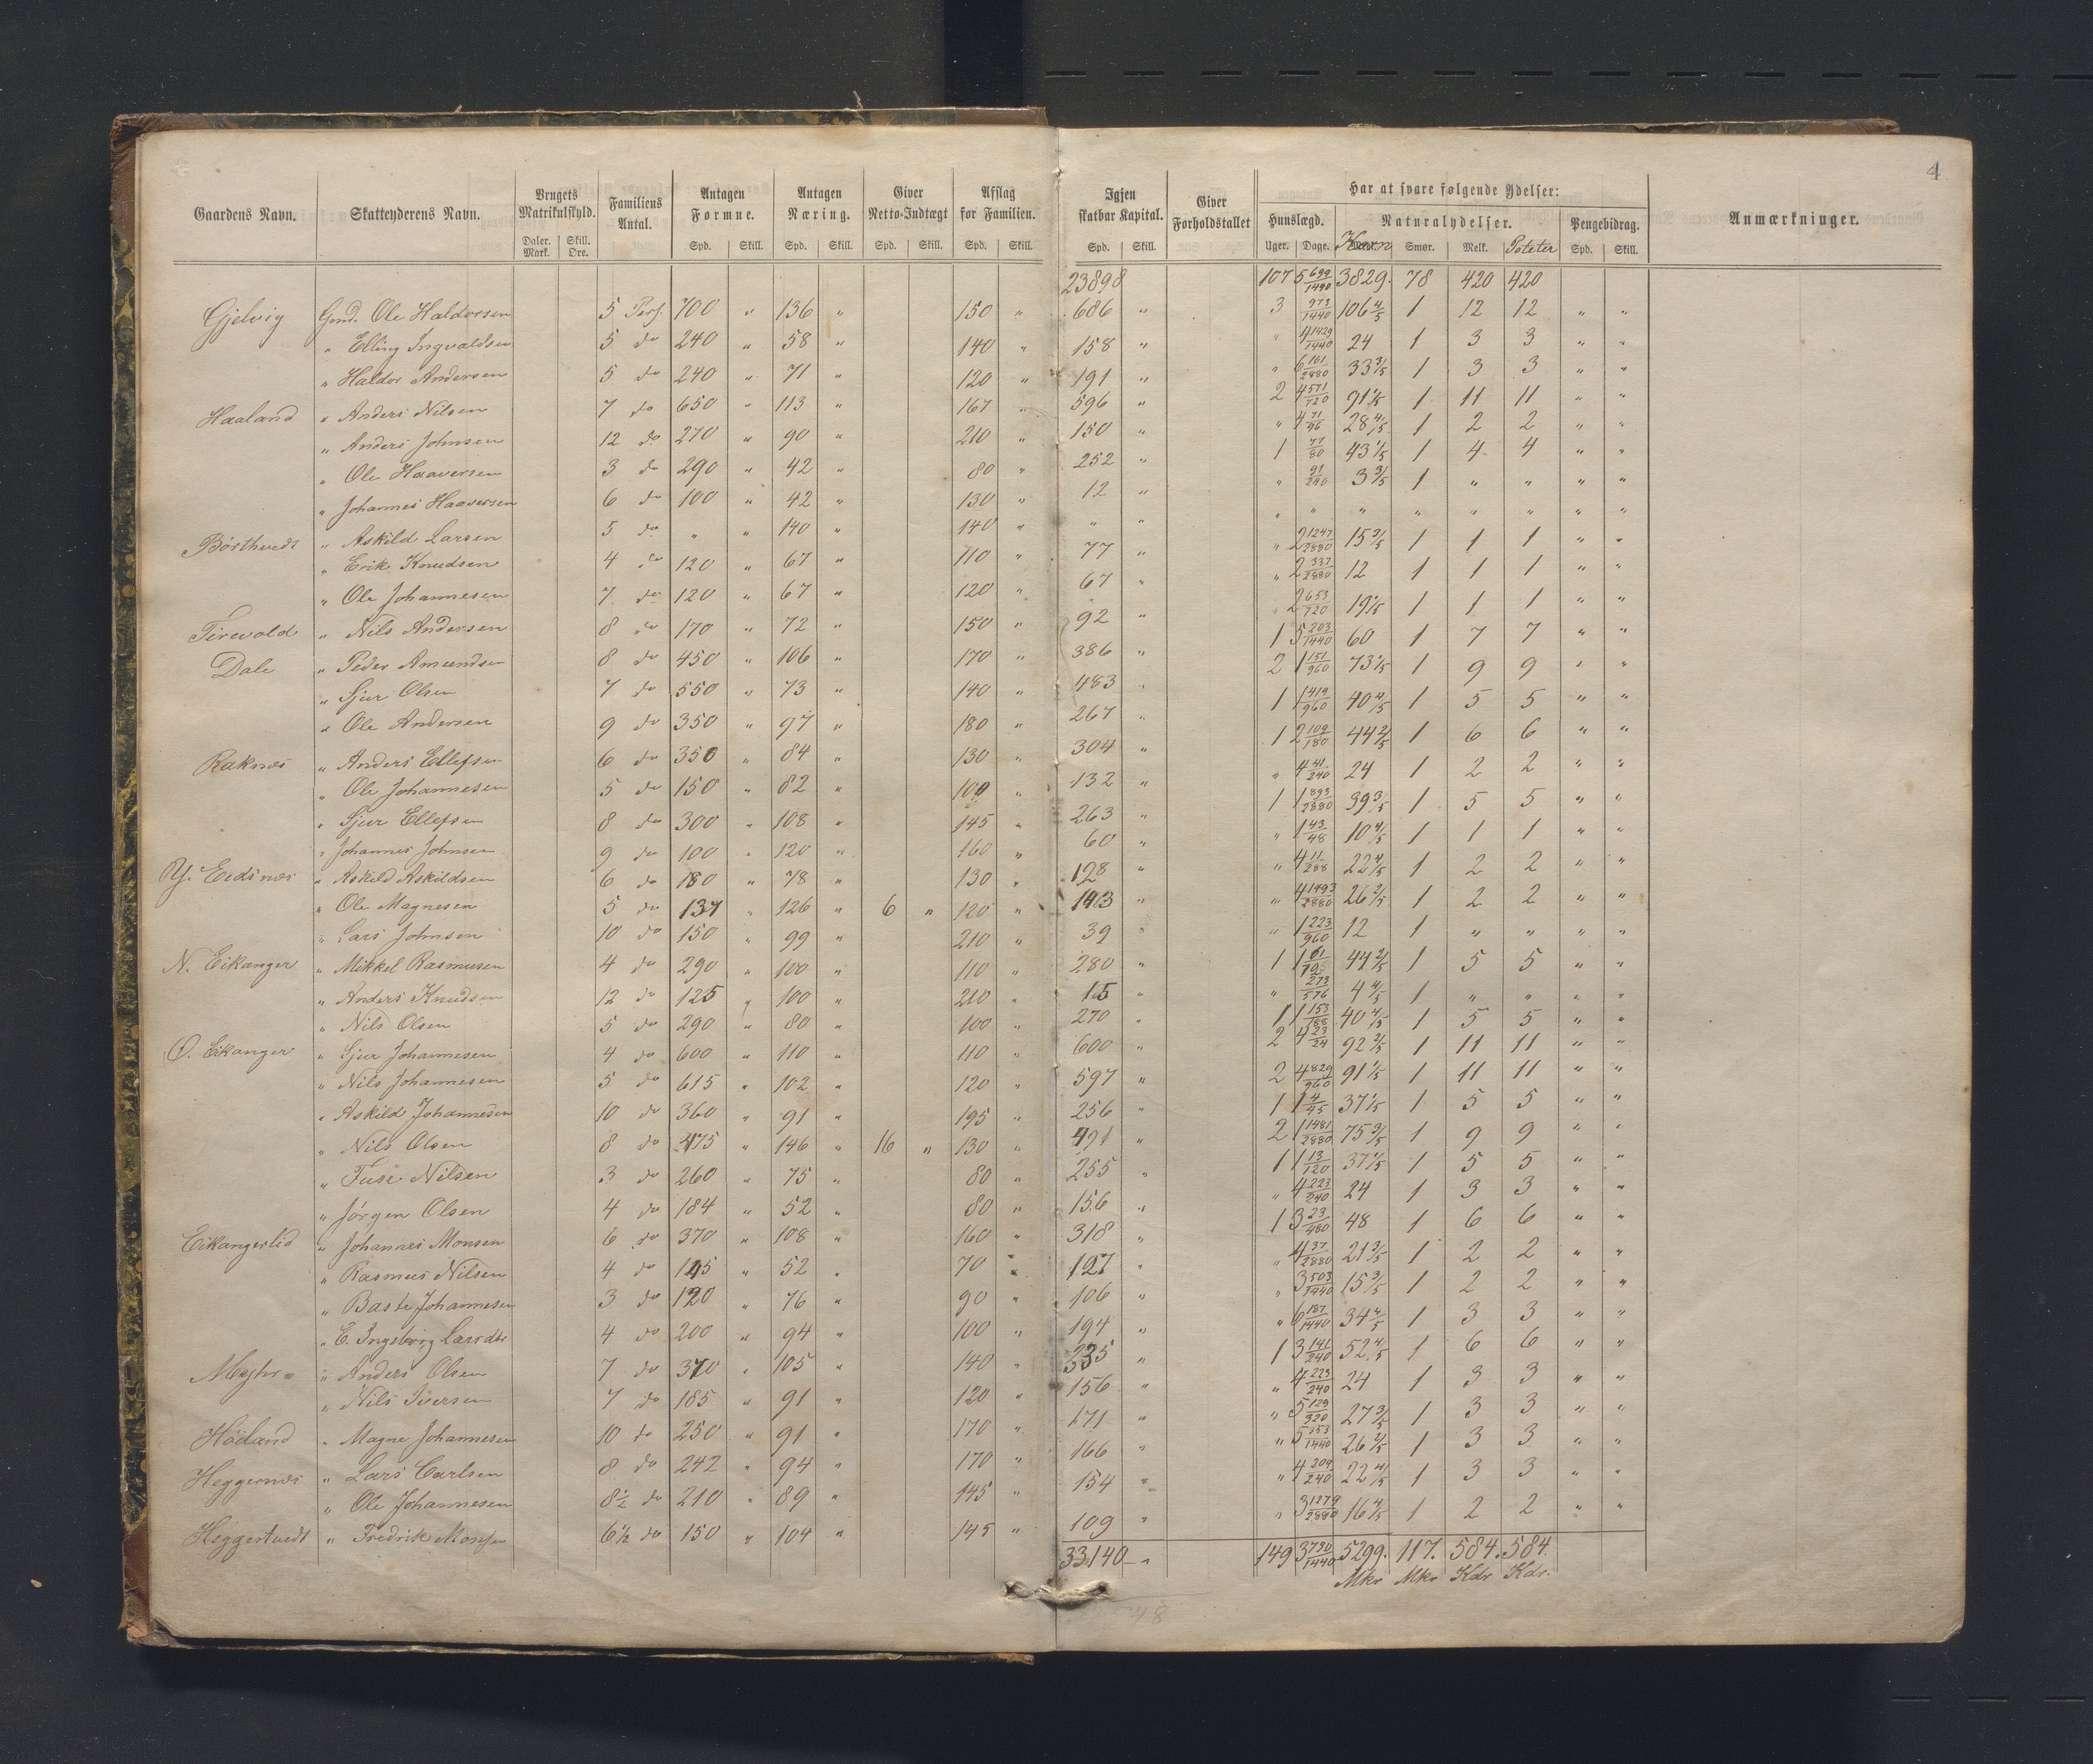 4
Gaardens Navn. Skatteyderens Navn. Brugets Matrikulskyld. Daler. Mark. Skill. Ore. Familiens Antal. Antagen Formue. Spd. Skill. Antagen Næring. Spd. Skill. Giver Netto-Indtægt Spd. Skill. Afslag for Familien. Spd. Skill. Igjen skatbar Kapital. Spd. Skill. Giver Forholdstallet Har at svare følgende Ydelser: Hunslægd. Uger. Dage. Naturalydelser. Korn Smør. Melk. Poteter Pengebidrag. Spd. Skill. Anmærkninger.
23898 107 5 699/1440 3829. 78 420 420
Gjelvig Gmd. Ole Haldorsen 5 Pers. 700 " 136 " 150 " 686 " 3 973/1440 106 4/5 1 12 12 " "
" Elling Ingvaldsen 5 do 240 " 58 " 140 " 158 " " 4 1429/1440 24 1 3 3 " "
" Haldor Andersen 5 do 240 " 71 " 120 " 191 " " 6 101/2880 33 3/5 1 3 3 " "
Haaland " Anders Nilsen 7 do 650 " 113 " 167 " 596 " 2 4 571/720 91 1/5 1 11 11 " "
" Anders Johnsen 12 do 270 " 90 " 210 " 150 " " 4 71/96 28 4/5 1 2 2 " "
" Ole Haaversen 3 do 290 " 42 " 80 " 252 " 1 77/80 43 1/5 1 4 4 " "
" Johannes Haaversen 6 do 100 " 42 " 130 " 12 " " 91/240 3 3/5 1 " " " "
Børsthvedt " Askild Larsen 5 do " " 140 " 140 " " " " " " " " " " "
" Erik Knudsen 4 do 120 " 67 " 110 " 77 " " 2 1247/2880 15 3/5 1 1 1 " "
" Ole Johannesen 7 do 120 " 67 " 120 " 67 " " 2 337/2880 12 1 1 1 " "
Tirevold " Nils Andersen 8 do 170 " 72 " 150 " 92 " " 2 653/720 19 1/5 1 1 1 " "
Dale " Peder Amundsen 8 do 450 " 106 " 170 " 386 " 1 5 203/1440 60 1 7 7 " "
" Sjur Olsen 7 do 550 " 73 " 140 " 483 " 2 1 151/960 73 1/5 1 9 9 " "
" Ole Andersen 9 do 350 " 97 " 180 " 267 " 1 1 419/960 40 4/5 1 5 5 " "
Raknæs " Anders Ellefsen 6 do 350 " 84 " 130 " 304 " 1 2 109/180 44 2/5 1 6 6 " "
" Ole Johannesen 5 do 150 " 82 " 100 " 132 " " 4 41/240 24 1 2 2 " "
" Sjur Ellefsen 8 do 300 " 108 " 145 " 263 " 1 1 893/2880 39 3/5 1 5 5 " "
" Johannes Johnsen 9 do 100 " 120 " 160 " 60 " " 1 43/48 10 4/5 1 1 1 " "
Y. Eidsnæs " Askild Askildsen 6 do 180 " 78 " 130 " 128 " " 4 11/288 22 4/5 1 2 2 " "
" Ole Magnesen 5 do 137 " 126 " 6 " 120 " 143 " " 4 1493/2880 26 2/5 1 2 2 " "
" Lars Johnsen 10 do 150 " 99 " 210 " 39 " " 1 223/960 12 1 " " " "
N. Eikanger " Mikkel Rasmusen 4 do 290 " 100 " 110 " 280 " 1 1 61/72 44 2/5 1 5 5 " "
" Anders Knudsen 12 do 125 " 100 " 210 " 15 " " 273/576 4 4/5 1 " " " "
" Nils Olsen 5 do 290 " 80 " 100 " 270 " 1 1 153/288 40 4/5 1 5 5 " "
O. Eikanger " Sjur Johannesen 4 do 600 " 110 " 110 " 600 " 2 4 23/24 92 2/5 1 11 11 " "
" Nils Johannesen 5 do 615 " 102 " 120 " 597 " 2 4 829/960 91 1/5 1 11 11 " "
" Askild Johannesen 10 do 360 " 91 " 195 " 256 " 1 1 4/45 37 1/5 1 5 5 " "
" Nils Olsen 8 do 475 " 146 " 16 " 130 " 491 " 2 1 1481/2880 75 3/5 1 9 9 " "
" Tuse Nilsen 3 do 260 " 75 " 80 " 255 " 1 1 13/120 37 1/5 1 5 5 " "
" Jørgen Olsen 4 do 184 " 52 " 80 " 156 " " 4 223/240 24 1 3 3 " "
Eikangerlid " Johannes Monsen 6 do 370 " 108 " 160 " 318 " 1 3 23/480 48 1 6 6 " "
" Rasmus Nilsen 4 do 145 " 52 " 70 " 127 " " 4 37/2880 21 3/5 1 2 2 " "
" Baste Johannesen 3 do 120 " 76 " 90 " 106 " " 3 503/1440 15 3/5 1 2 2 " "
" E. Ingeborg Larsdtr 4 do 200 " 94 " 100 " 194 " " 6 187/1440 34 4/5 1 3 3 " "
" Anders Olsen 7 do 370 " 105 " 140 " 335 " 1 3 141/240 52 4/5 1 6 6 " "
" Nils Iversen 7 do 185 " 91 " 120 " 156 " " 4 223/240 24 1 3 3 " "
Høiland " Magne Johannesen 10 do 250 " 91 " 170 " 171 " " 5 129/320 27 3/5 1 3 3 " "
Heggernæs " Lars Carlsen 8 do 242 " 94 " 170 " 166 " " 5 353/1440 26 2/5 1 3 3 " "
" Ole Johannesen 8 1/2 do 210 " 89 " 145 " 154 " " 4 209/240 22 4/5 1 3 3 " "
Heggertvedt " Fredrik Monsen 6 1/2 do 150 " 104 " 145 " 109 " " 3 1279/2880 16 4/5 1 2 2 " "
33140 " 149 3 730/1440 5299. 117. 584. 584.
Mkr Mkr Kdr Kdr.
48